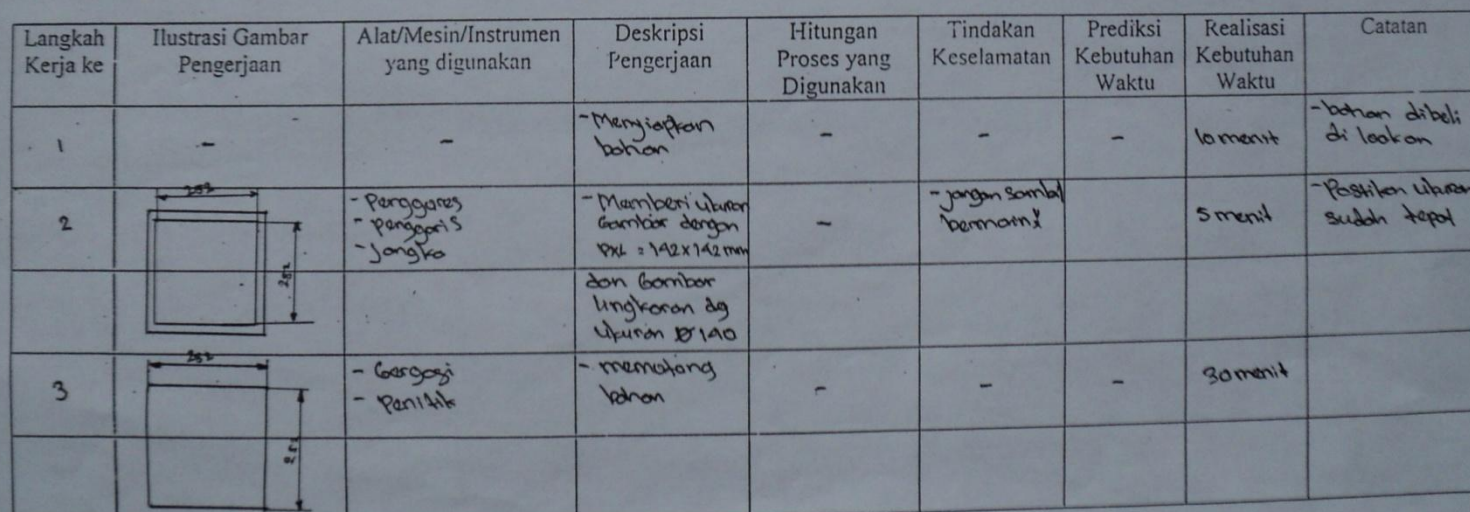 Langkah
Kerja ke
Ilustrasi Gambar
Pengerjaan
Alat/Mesin/Instrumen
yang digunakan
Deskripsi
Pengerjaan
Hitungan
Proses yang
Digunakan
Tindakan
Keselamatan
Prediksi
Kebutuhan
Waktu
Realisasi
Kebutuhan
Waktu
Catatan
1
-
-
- Menyiapkan
bahan
-
-
-
10 menit
- bahan dibeli
di
2
252
252
- Penggores
- penggaris
- Jangka
- Memberi ukuran
Gambar dengan
PXL = 142 x 142 mm
dan Gambar
lingkaran dg
ukuran Ø 140
-
- jangan sambil
bermain!
5 menit
- Pastikan ukuran
sudah tepat
3
252
252
- Gergaji
- Penitik
- memotong
bahan
-
-
-
30 menit